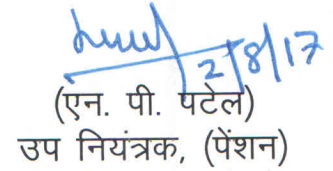 2/8/17
(एन. पी. पटेल)
उप नियंत्रक, (पेंशन)